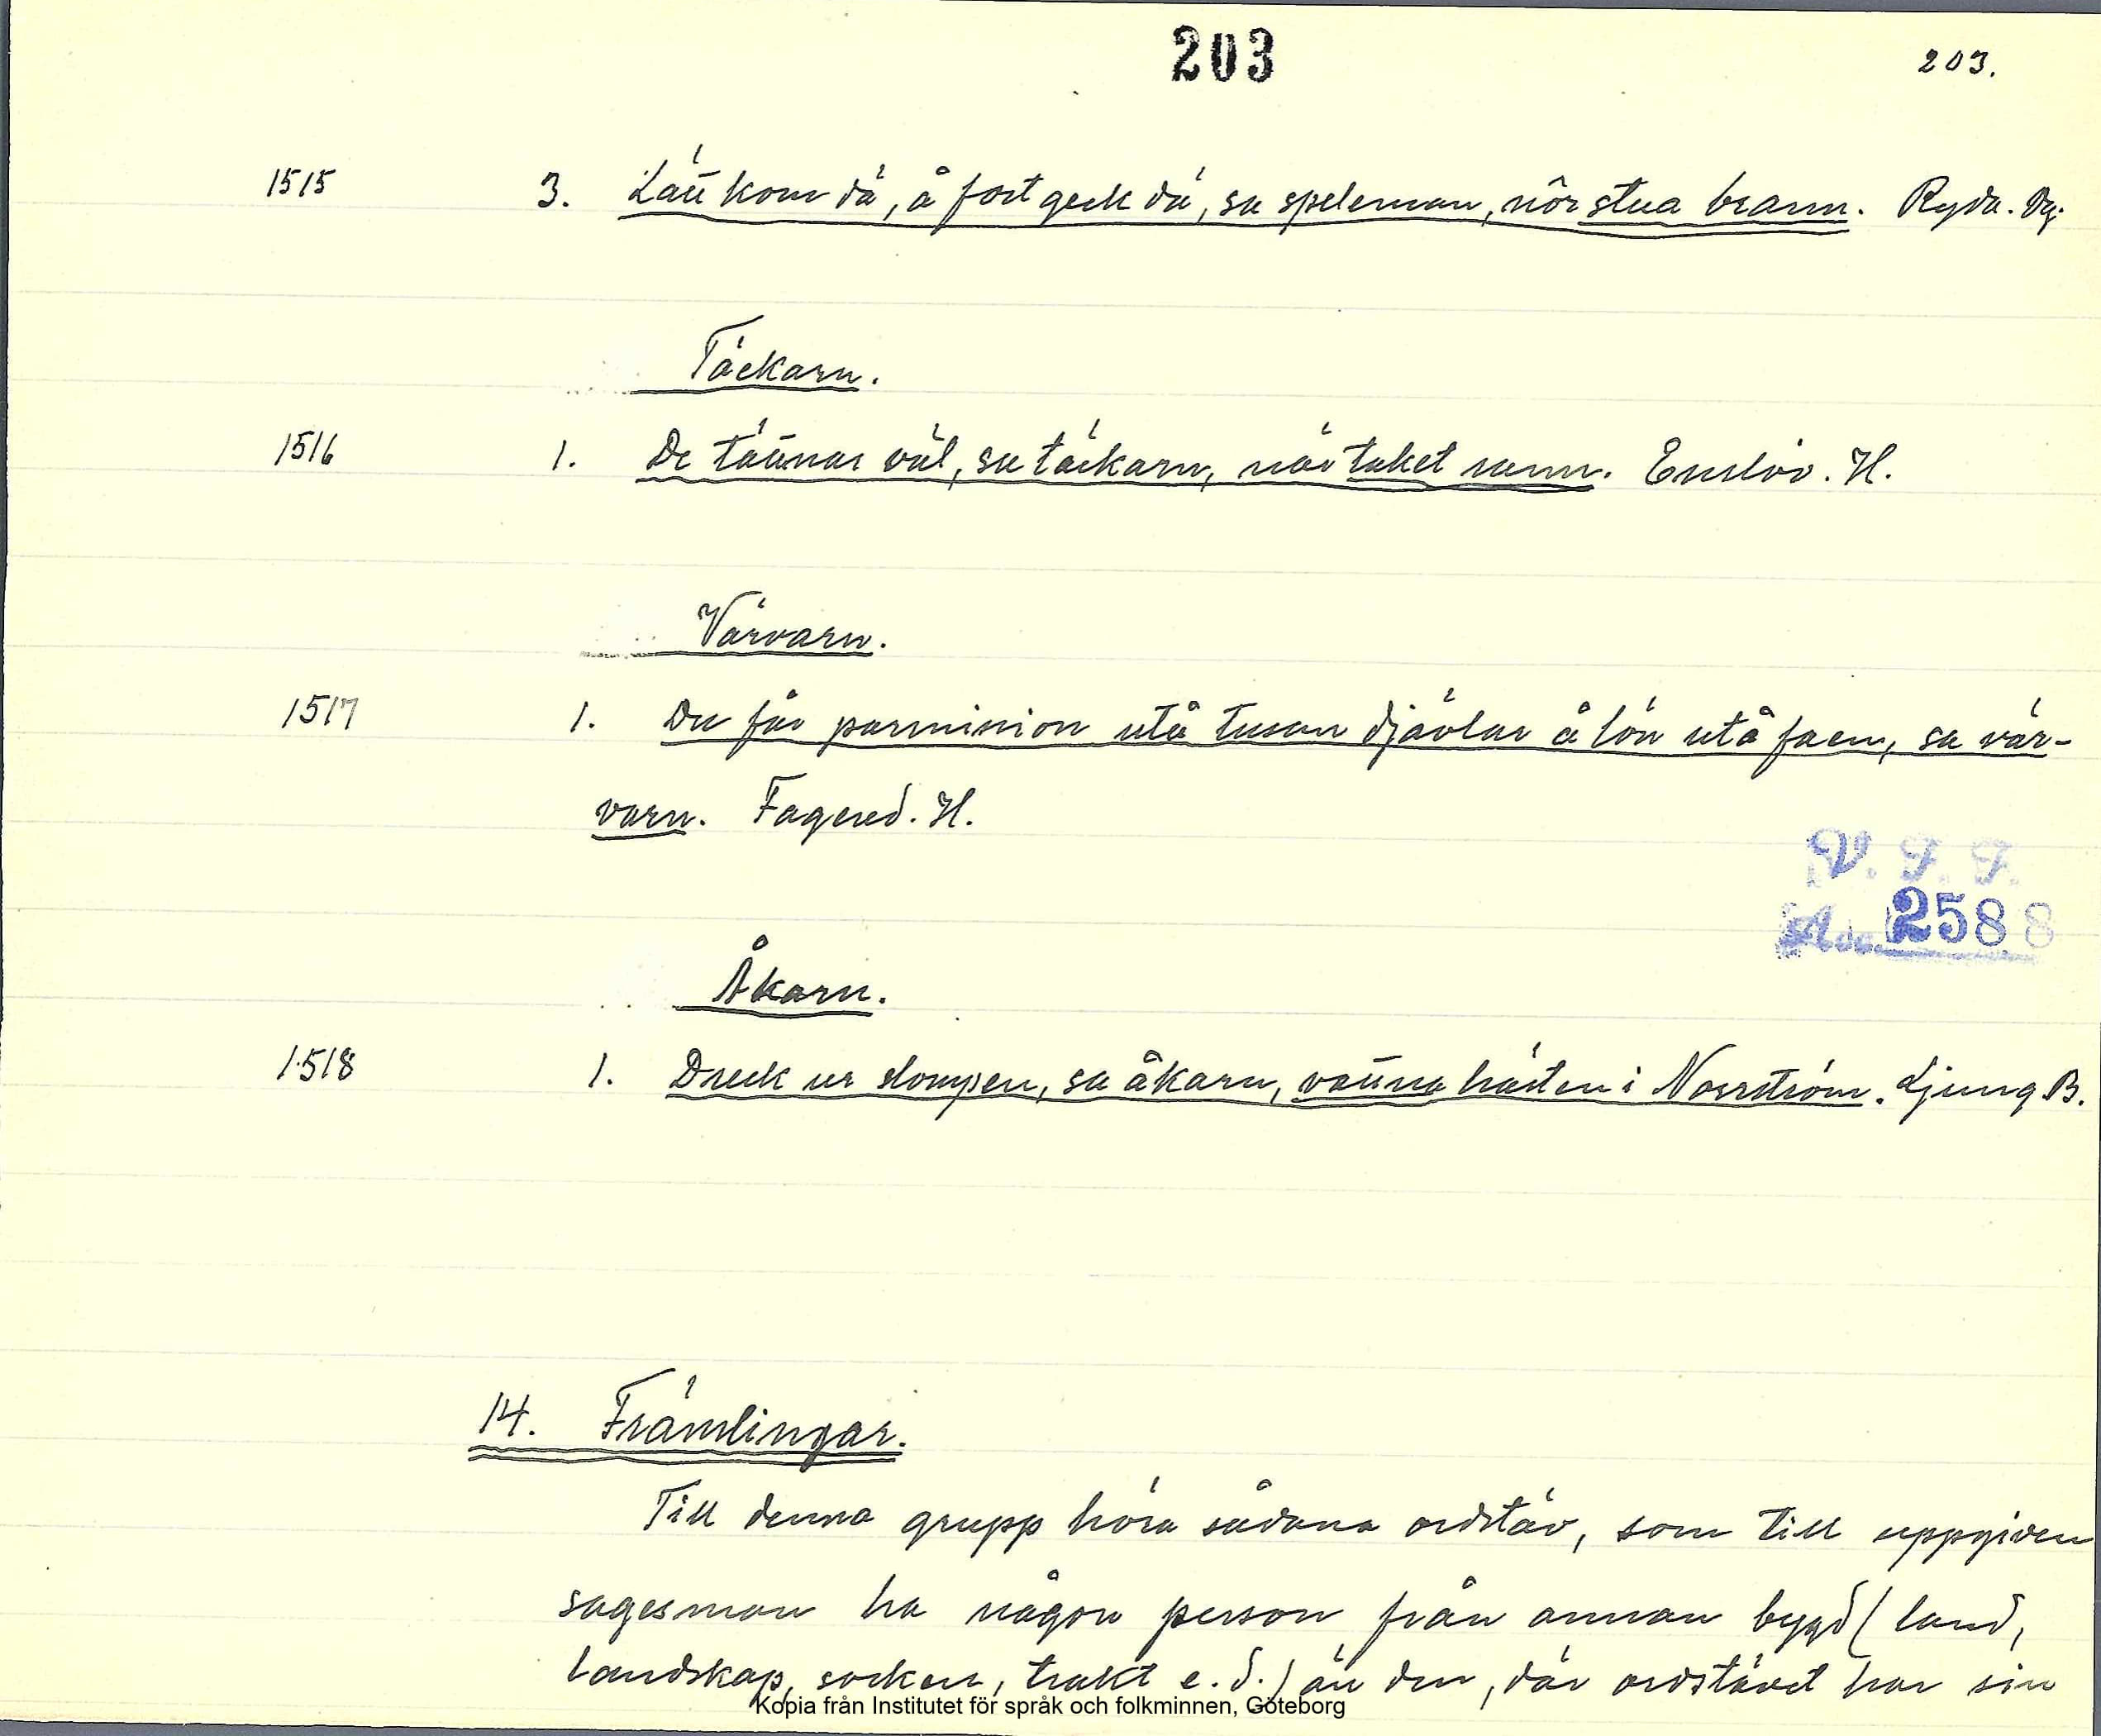 203
203.
1515 3. Lätt kom dä, å fort geck dä, sa speleman, nôr stua brann. Ryda. Vg.
Täckarn.
1516 1. De tätnar väl, sa täckarn, när taket rann. Enslöv. H.
Värvarn.
1517 1. Du får parmission utå tusan djävlar å lön utå faen, sa vär-
varn. Fagered. H.
V. F. F.
Acc. 2588
Åkarn.
1518 1. Dreck ur slompen, sa åkarn, vattna hästen i Norrström. Ljung B.
14. Främlingar.
Till denna grupp höra sådana ordstäv, som till uppgiven
sagesman ha någon person från annan bygd (land,
landskap, socken, trakt e.d.) än den, där ordstävet har sin
Kopia från Institutet för språk och folkminnen, Göteborg